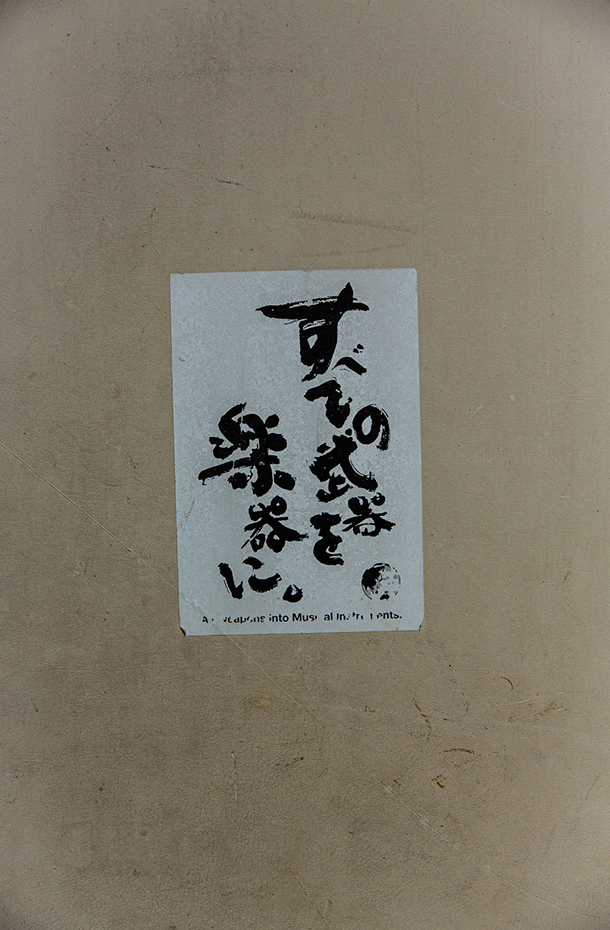 すべての武器を
楽器に。
Weapons into Musical Instruments.